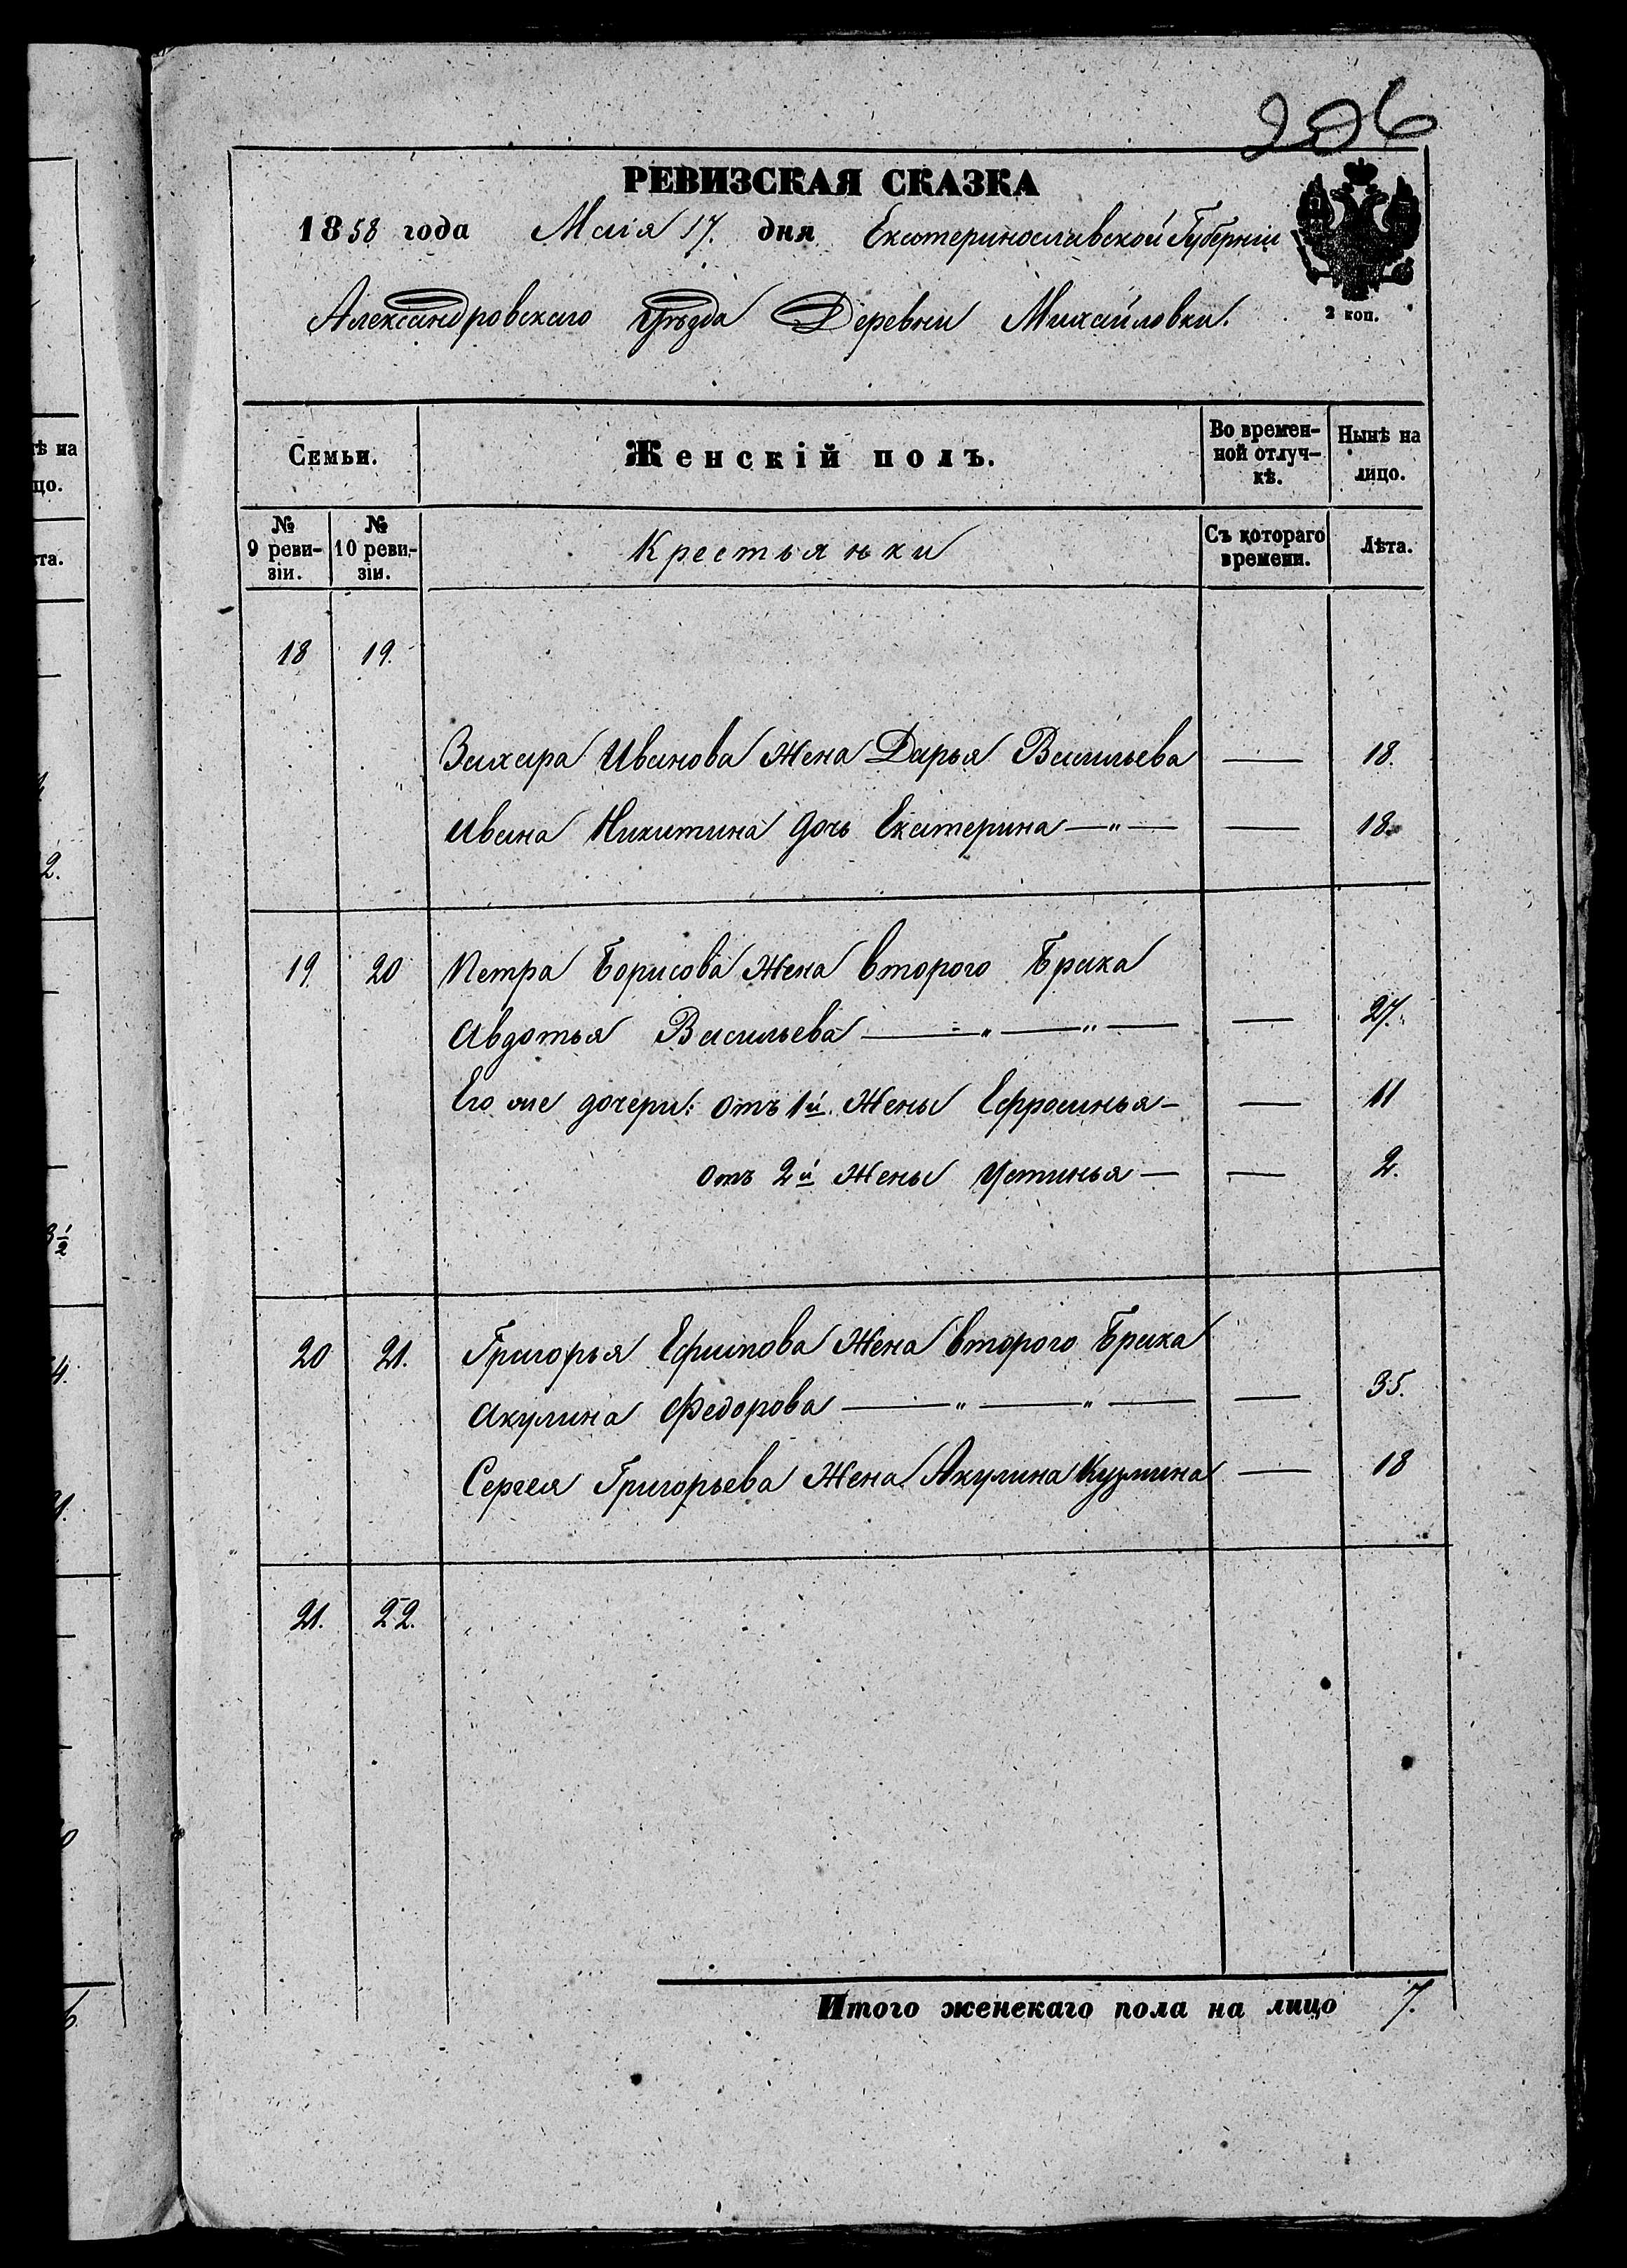 206
РЕВИЗСКАЯ СКАЗКА
1858 года Маія 17. дня Екатеринославской Губерніи
Александровскаго Уѣзда Деревни Михайловки.
2 коп.
Семьи.
Женскій полъ.
Во времен-
ной отлуч-
кѣ.
Нынѣ на
лицо.
№
9 реви-
зіи.
№
10 реви-
зіи.
Крестьянки
Съ котораго
времени.
Лѣта.
18 19.
Захара Иванова Жена Дарья Васильева — 18.
Ивана Никитина дочь Екатерина —"— — 18.
19. 20 Петра Борисова Жена второго Брака
Авдотья Васильева —"—"— — 27.
Его же дочери: отъ 1й Жены Ефросинья — — 11
отъ 2й Жены Устинья — — 2.
20 21. Григорья Ефимова Жена второго Брака
Акулина Федорова —"—"— — 35.
Сергея Григорьева Жена Акулина Кузмина — 18
21. 22.
Итого женскаго пола на лицо 7.